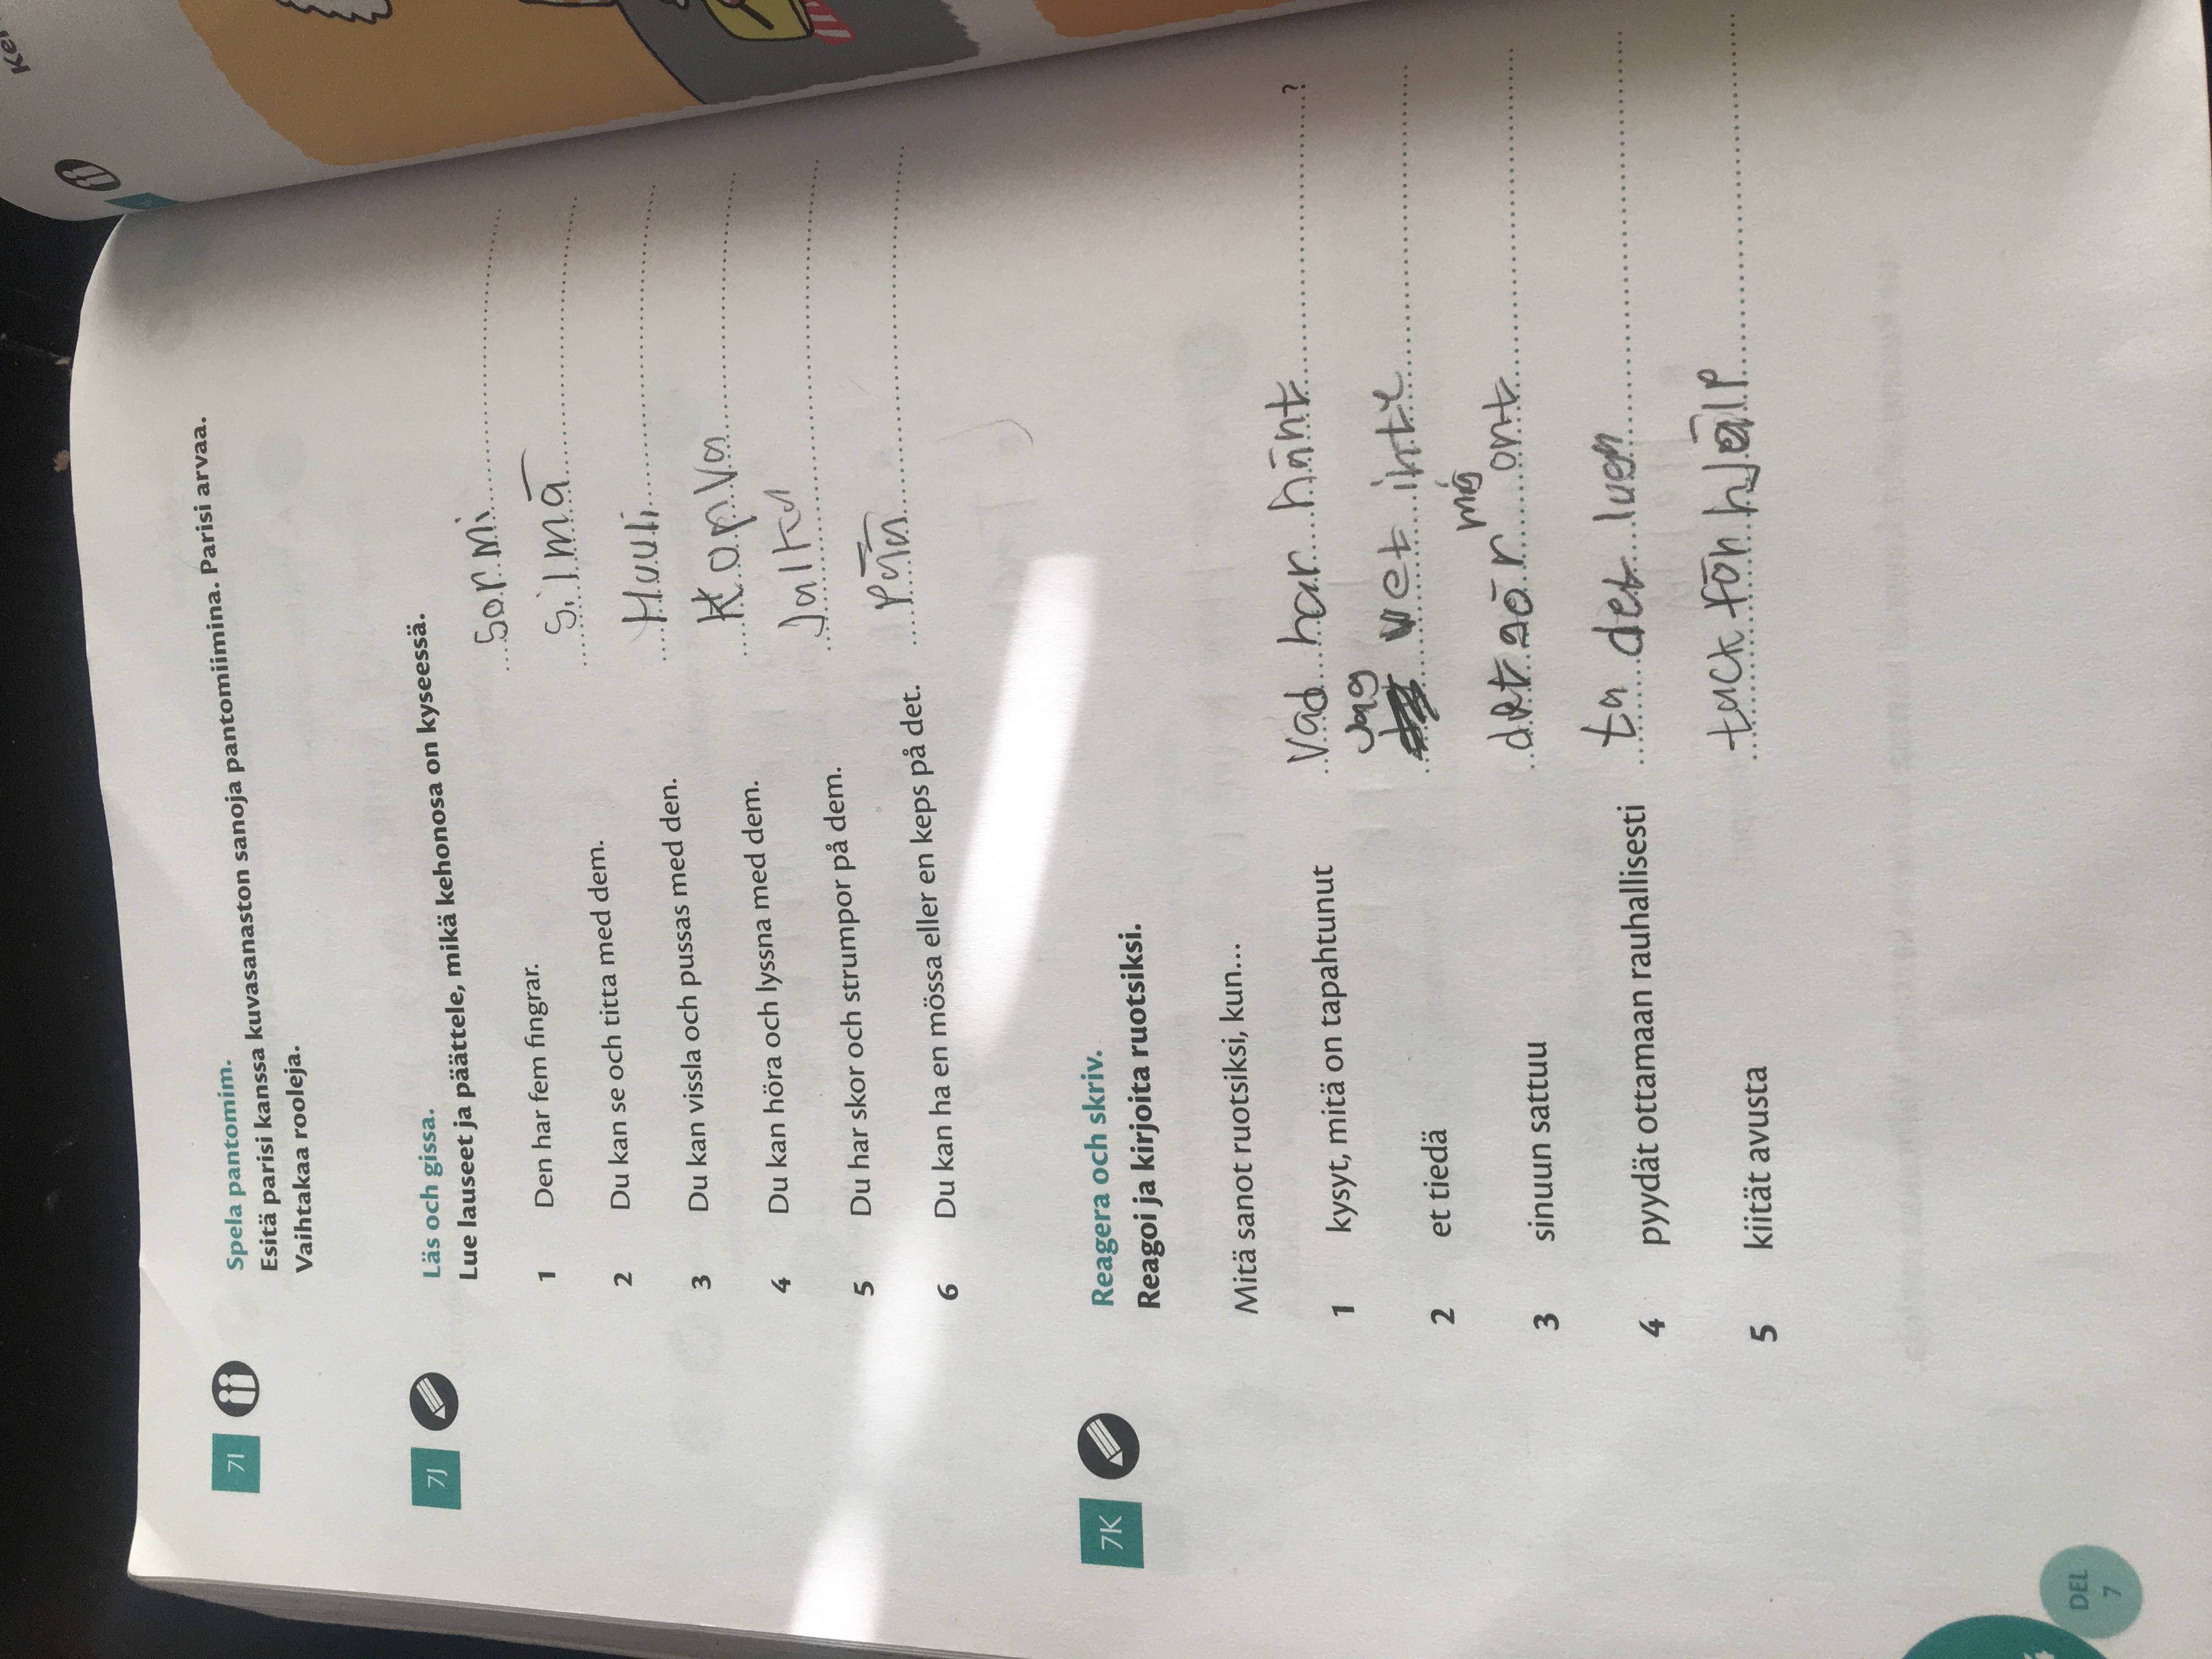 Ker
7I
Spela pantomim.
Esitä parisi kanssa kuvasanaston sanoja pantomiimina. Parisi arvaa.
Vaihtakaa rooleja.
7J
Läs och gissa.
Lue lauseet ja päättele, mikä kehonosa on kyseessä.
1 Den har fem fingrar. Sormi
2 Du kan se och titta med dem. Silmä
3 Du kan vissla och pussas med den. Huuli
4 Du kan höra och lyssna med dem. Korva
5 Du har skor och strumpor på dem. Jalka
6 Du kan ha en mössa eller en keps på det. Pää
7K
Reagera och skriv.
Reagoi ja kirjoita ruotsiksi.
Mitä sanot ruotsiksi, kun...
1 kysyt, mitä on tapahtunut Vad har hänt ?
jag
2 et tiedä vet inte
må
3 sinuun sattuu det gör ont
4 pyydät ottamaan rauhallisesti ta det luen
5 kiität avusta tack för hjälp
DEL
7